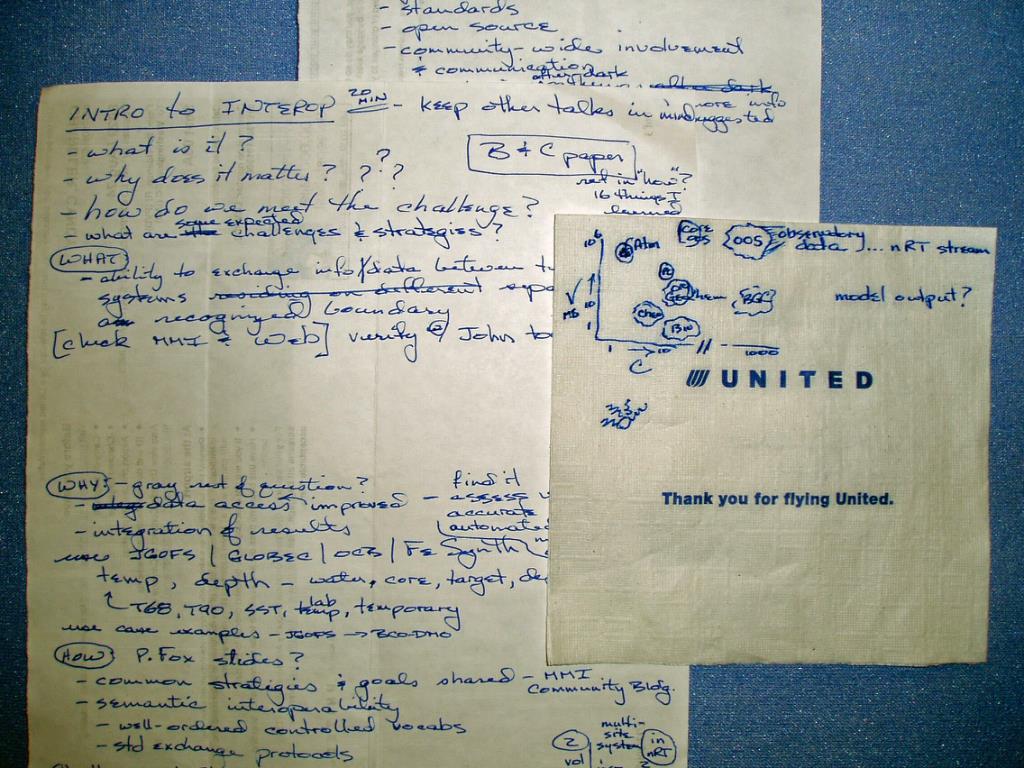 - standards
- open source
- community-wide involvement
& communication
after dark
INTRO to INTEROP 20 MIN - keep other talks in mind
more info
suggested
- what is it?
B & C paper
- why does it matter? ? ? ?
not in "how"?
16 things I
learned
- how do we meet the challenge?
- what are some expected challenges & strategies?
WHAT?
- ability to exchange info/data between
systems residing on different
a recognized boundary
[check MMI & Web] verify John
WHY? - gray rest of question?
find it
- data access improved -
assess
accurate
- integration of results
automated
JGOFS / GLOBEC / OCB / Fe Synth
temp, depth - water, core, target,
T68, T90, SST, lab temp, temporary
use case examples - JGOFS → BCO-DMO
HOW? P. Fox slides?
- common strategies & goals shared - MMI
Community Bldg.
- semantic interoperability
- well-ordered controlled vocabs
- std exchange protocols
2
vol
multi-
site
system
in
nRT
10 6
Atm
core
OOS
OOS
observatory
data ... nRT stream
MB
10
1
chem
Bio
BGC
model output?
1 → 10 // 1000
C
UNITED
Thank you for flying United.